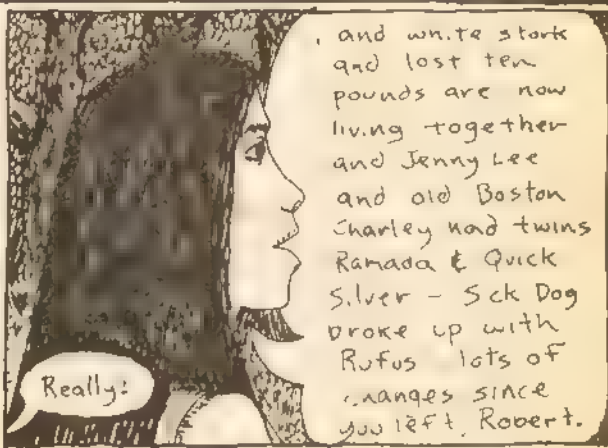 and white stork
and lost ten
pounds are now
living together
and Jenny Lee
and old Boston
Charley had twins
Ramada & Quick
Silver - Sick Dog
broke up with
Rufus lots of
changes since
you left, Robert.
Really!